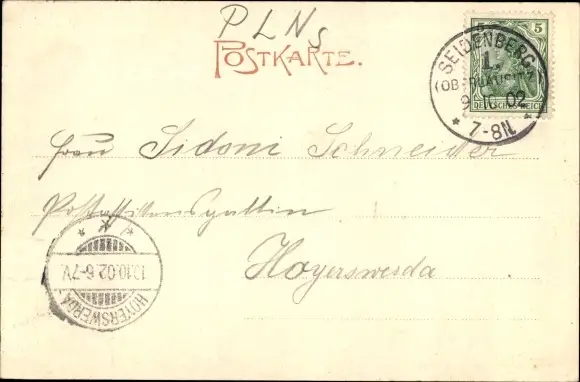 PLNs
POSTKARTE.
5
DEUTSCHES REICH
SEIDENBERG
1.
(OBERLAUSITZ)
9.10.02
* 7-8N. *
Frau Sidoni Schneider
Hoyerswerda
10.02.6-7V.
HOYERSWERDA